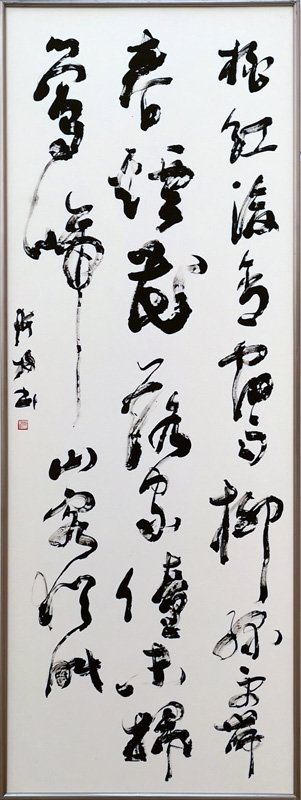 桃紅復含宿雨柳緑更帯
春煙花落家僮未掃
鶯啼山客猶眠